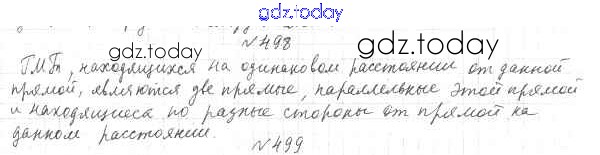 gdz.today
№498
gdz.today gdz.today
ГМТ, находящихся на одинаковом расстоянии от данной
прямой, являются две прямые, параллельные этой прямой
и находящиеся по разные стороны от прямой на
данном расстоянии.
№499